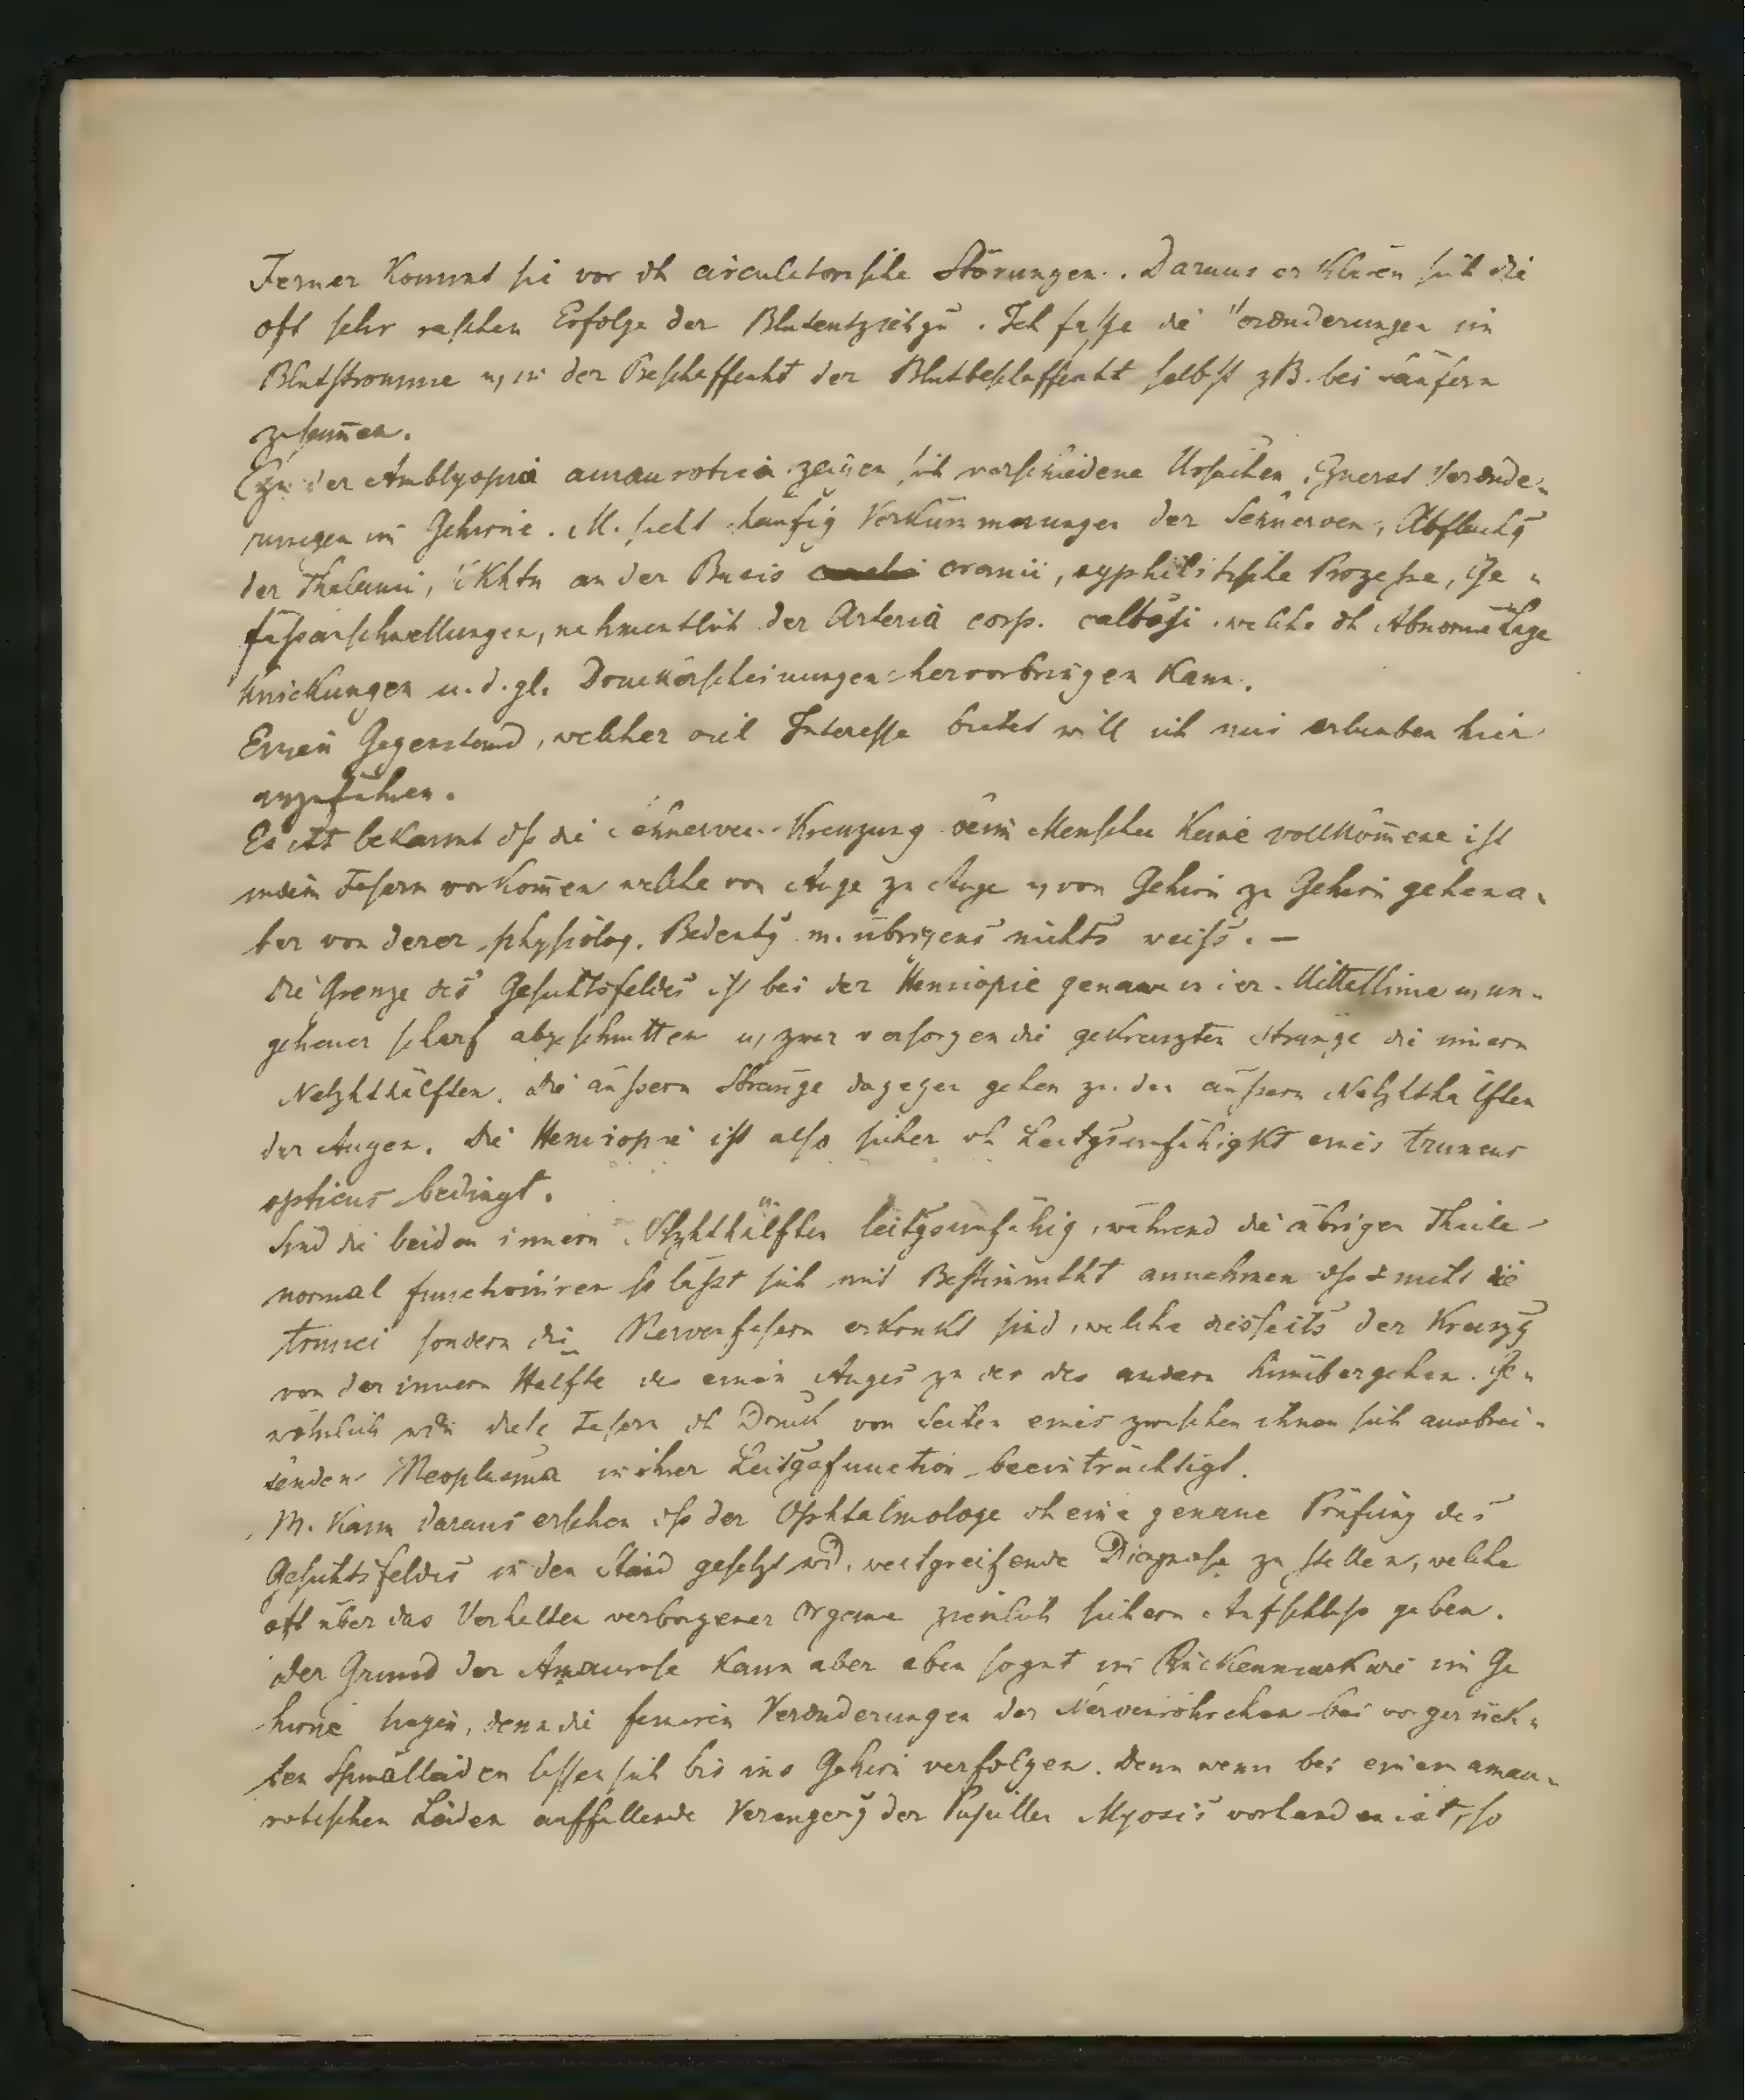 Ferner kommt sie vor dh circulatorische Störungen. Daraus erklären sich die
oft sehr raschen Erfolge der Blutentziehgn. Ich fasse die Veränderungen im
Blutstromme u, in der Beschaffenht der Blutbeschaffenht selbst zB. bei Säufern
zusam̄en.
Zu der Amblyopia amaurotica zeigen sich verschiedene Ursachen. Zuerst Verände-
rungen im Gehirne. M. sieht häufig Verkümmerungen der Sehnerven, Abflachg
der Thalami, an der Basis cranii, syphilitische Prozesse, Ge-
fässanschwellungen, nahmentlich der Arteria corp. callosi welche dh Abnorme Lage
Knickungen u. d. gl. Druckerscheinungen hervorbringen kann.
Einen Gegenstand, welcher viel Interesse bietet will ich mir erlauben hier
anzuführen.
Es ist bekannt dss die Sehnerven-Kreuzung beim Menschen keine vollkom̄ene ist
indem Fasern vorkom̄en welche von Auge zu Auge u, von Gehirn zu Gehirn gehen a-
ber von derer physiolog. Bedeutg m. übrigens nichts weiss. —
Die Grenze des Gesichtsfeldes ist bei der Hemiopie genau in der Mittellinie u, un-
geheuer scharf abgeschnitten u, zwar versorgen die gekreuzten Stränge die innern
Netzhthälften. Die äussern Stränge dagegen gehen zu den äussern Netzhthälften
der Augen. Die Hemiopie ist also sicher dh Leitgsunfähigkt eines truncus
opticus bedingt.
Sind die beiden innern Netzhthälften leitgsunfähig, während die übrigen Theile
normal functioniren so lässt sich mit Bestimmtht annehmen dss nicht die
trunci sondern die Nervenfasern erkrankt sind, welche diesseits der Kreuzg
von der innern Hälfte des einen Auges zu der des andern hinübergehen. Ge-
wöhnlich wdn diese Fasern dh Druck von Seiten eines zwischen ihnen sich ausbrei-
tenden Neoplasma in ihrer Leitgsfunction beeinträchtigt.
M. kann daraus ersehen dss der Ophtalmologe dh eine genaue Prüfung des
Gesichtsfeldes in den Stand gesetzt wd. weitgreifende Diagnose zu stellen, welche
oft über das Verhalten verborgener Organe ziemlich sichern Aufschluss geben.
Der Grund der Amaurose kann aber eben sogut im Rückenmark wie im Ge
hirne liegen, denn die feineren Veränderungen der Nervenröhrchen bei vorgerück-
ten Spinalleiden lassen sich bis ins Gehirn verfolgen. Denn wenn bei einem amau-
rotischen Leiden auffallende Verengerg der Pupillen Myosis vorhanden ist, so